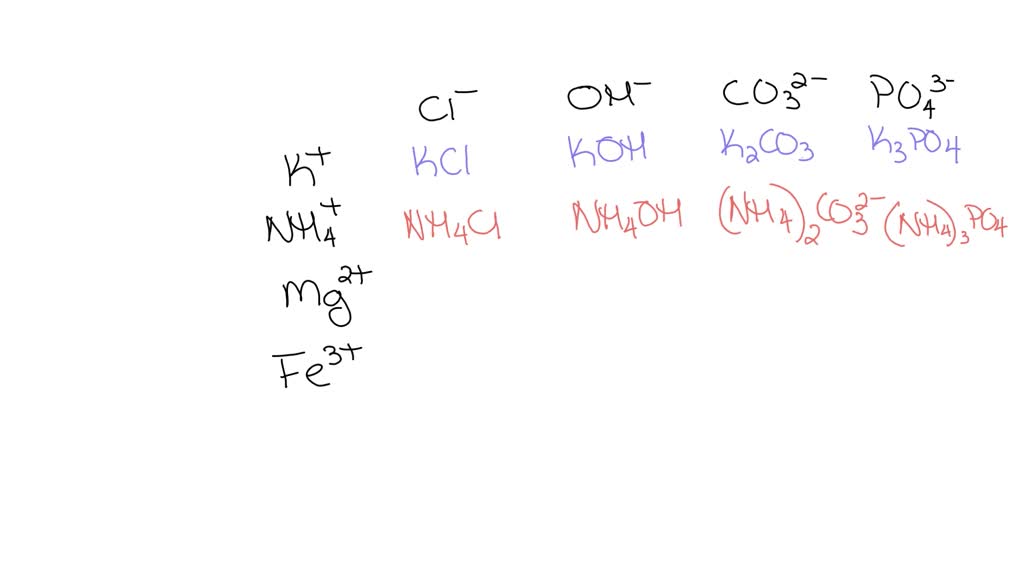 Cl⁻ OH⁻ CO₃²⁻ PO₄³⁻
K⁺ KCl KOH K₂CO₃ K₃PO₄
NH₄⁺ NH₄Cl NH₄OH (NH₄)₂CO₃²⁻ (NH₄)₃PO₄
Mg²⁺
Fe³⁺